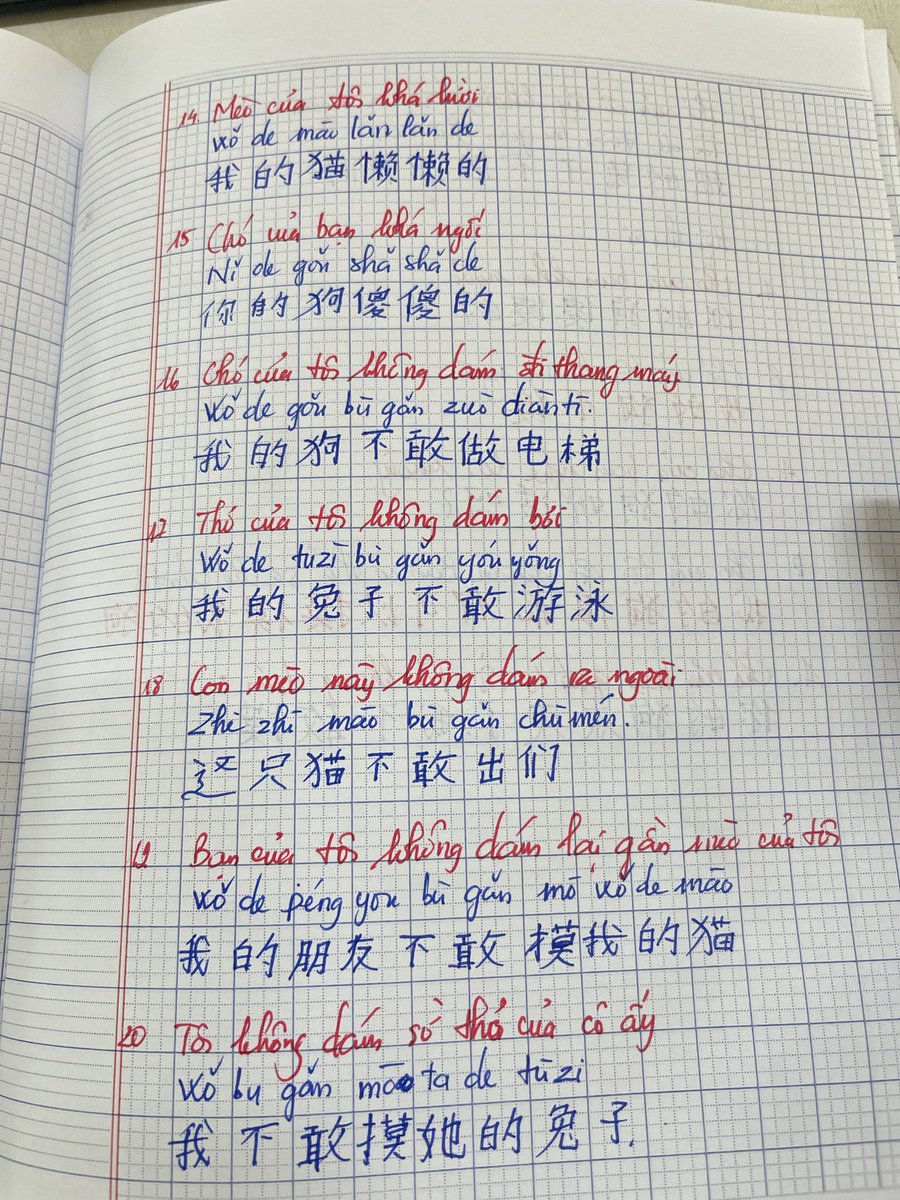 14. Mèo của tôi khá lười
Wǒ de māo lǎn lǎn de
我的猫懒懒的
15 Chó của bạn khá ngốc
Nǐ de gǒu shǎ shǎ de
你的狗傻傻的
16 Chó của tôi không dám đi thang máy
Wǒ de gǒu bù gǎn zuò diàntī.
我的狗不敢做电梯
17 Thỏ của tôi không dám bơi
Wǒ de tuzi bù gǎn yóu yǒng
我的兔子不敢游泳
18 Con mèo này không dám ra ngoài
Zhè zhī māo bù gǎn chūmén.
这只猫不敢出们
19 Bạn của tôi không dám lại gần mèo của tôi
Wǒ de péng you bù gǎn mō wǒ de māo
我的朋友不敢摸我的猫
20 Tôi không dám sờ thỏ của cô ấy
Wǒ bu gǎn mō ta de tùzi
我不敢摸她的兔子.